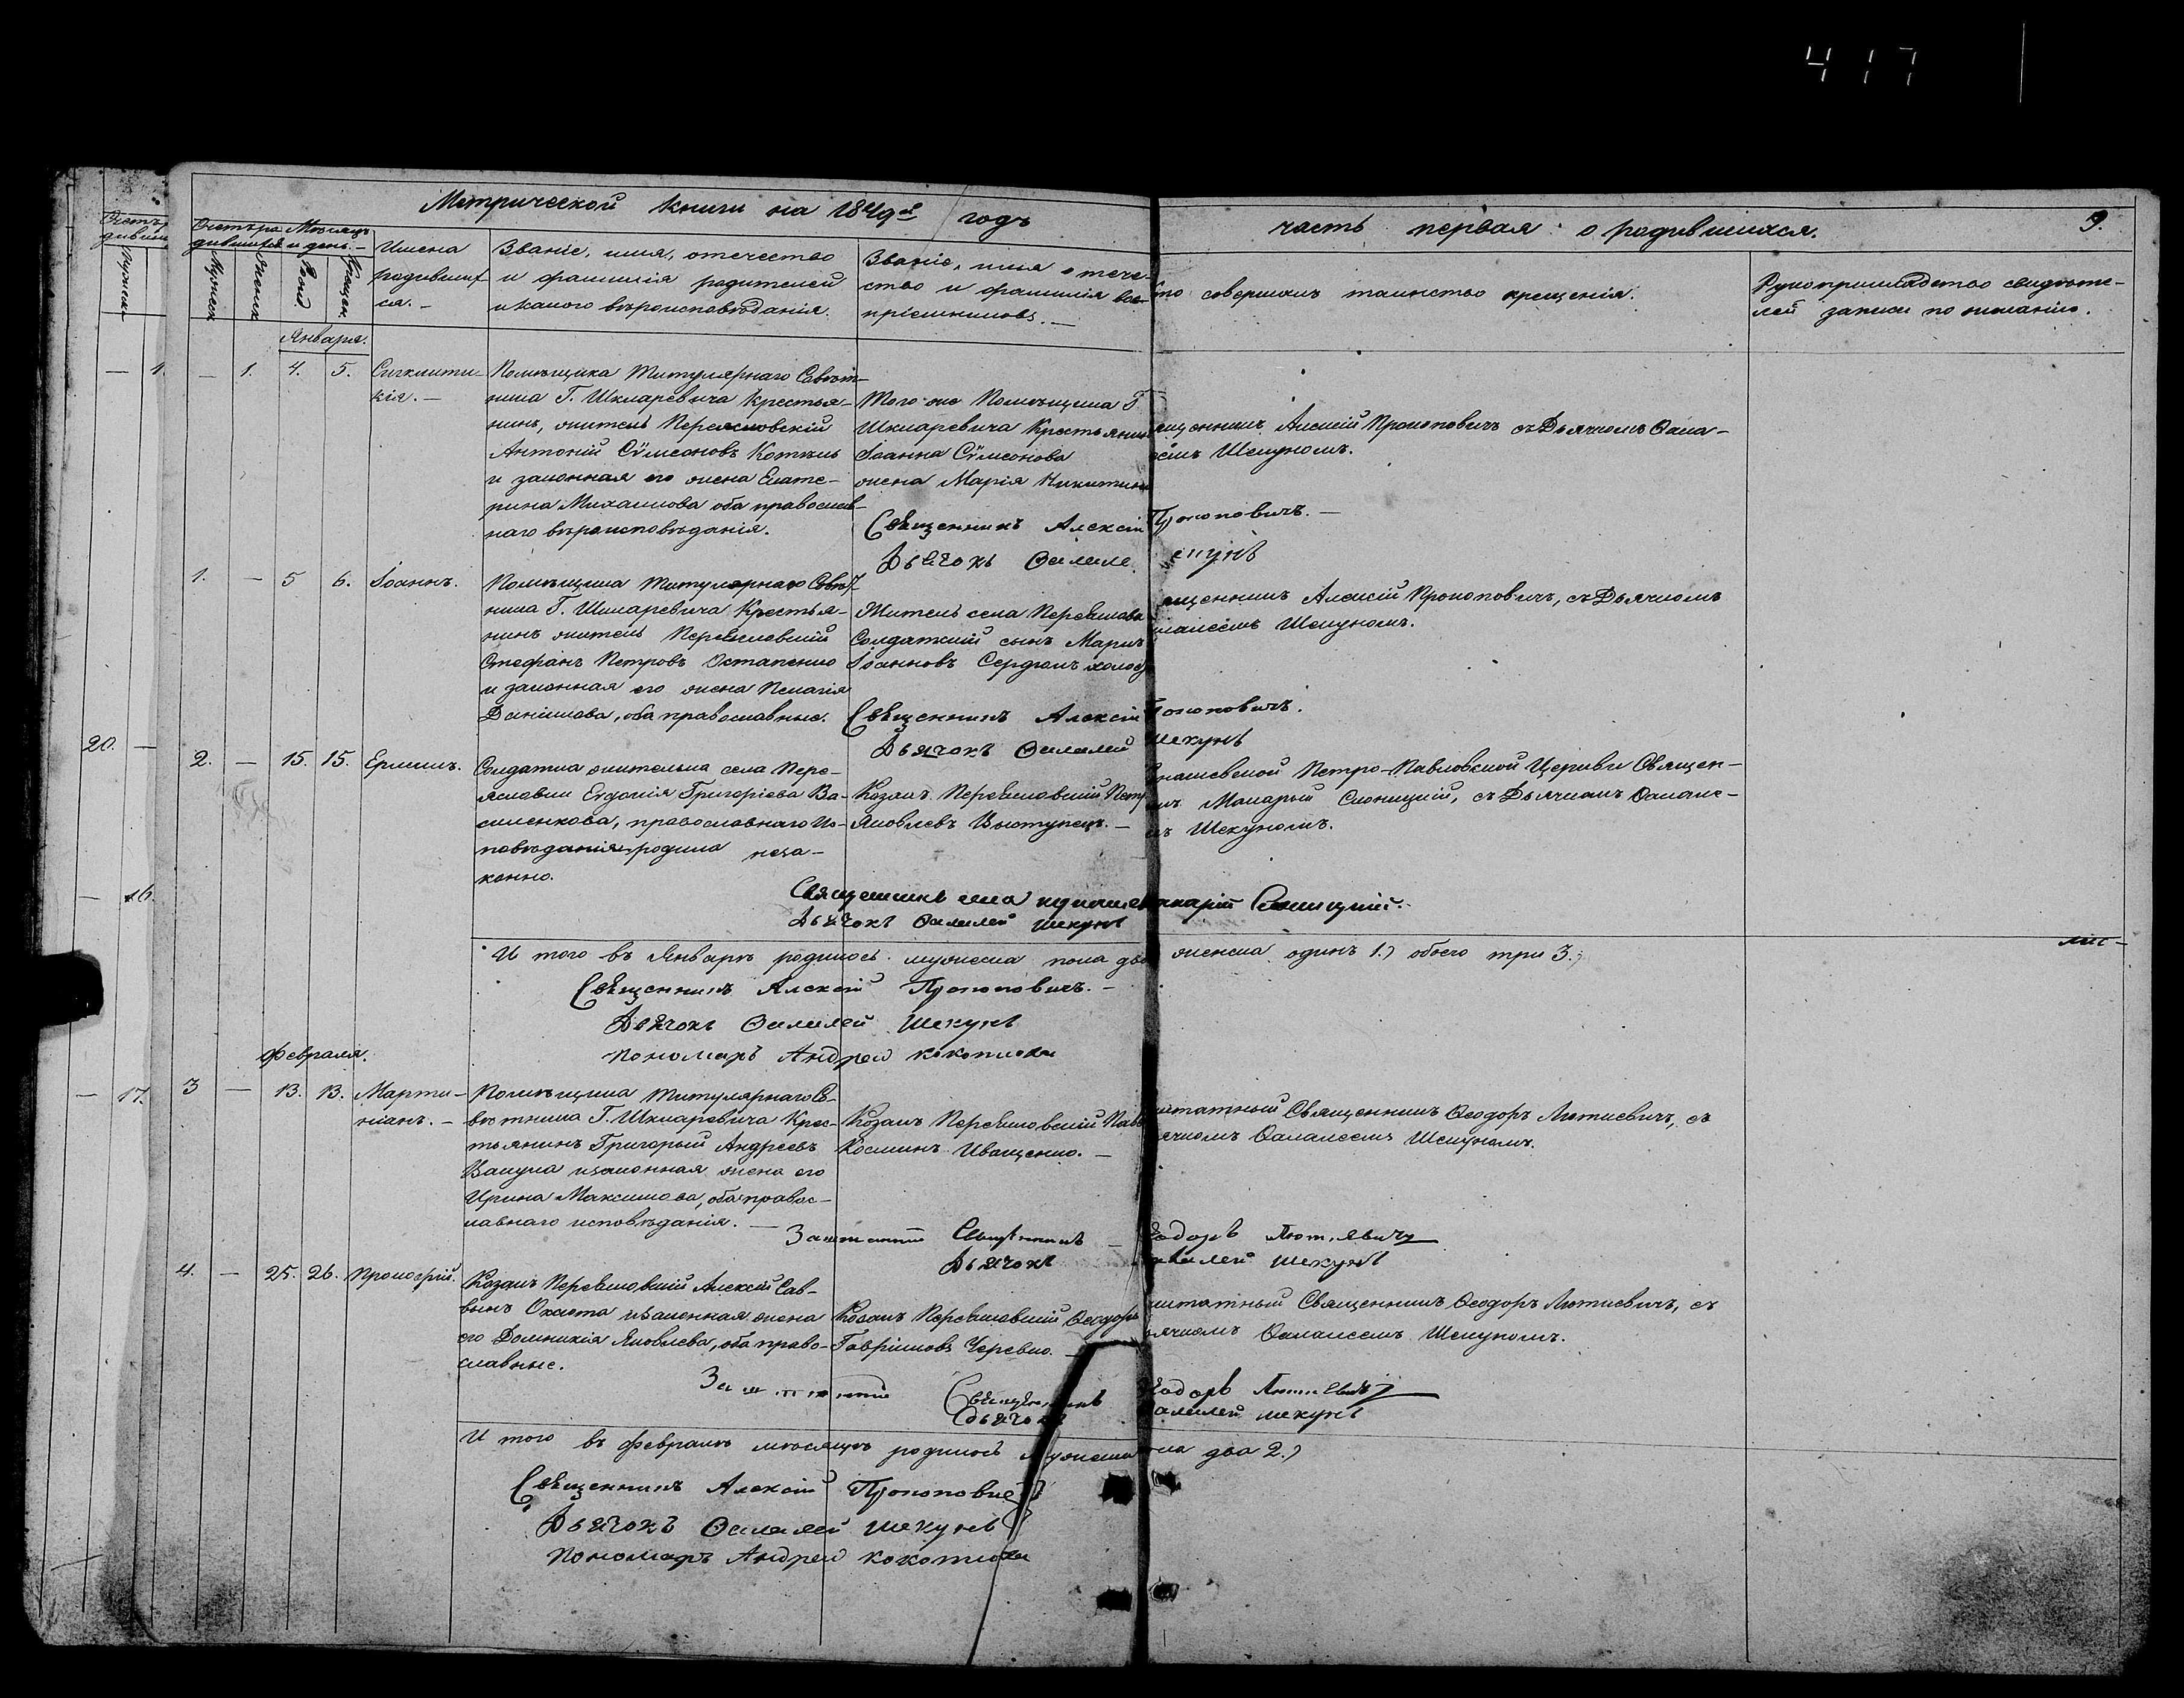 417
Метрической книги на 1849й годъ
часть первая о родившихся.
9.
Счетъ ро- Мѣсяцъ
дившихся и день.
Мужеск
Женск
Рожд
Крещен
Имена
родивших
ся. –
Званіе, имя, отечество
и фамилія родителей
и какого вѣроисповѣданія.
Званіе, имя отече-
ство и фамилія вос-
пріемниковъ. –
то совершалъ таинство крещенія.
Рукоприкладство свидѣте-
лей записи по желанію.
Января.
– 1. 4. 5. Сигклити-
кія. –
Помѣщика Титулярнаго Совѣт-
ника Г. Шкларевича Крестья-
нинъ, житель Переясловскій
Антоній Сѵмеоновъ
и законная его жена Екате-
рина Михаилова оба православ-
наго вѣроисповѣданія.
Того же Помѣщика Г
Шкларевича Крестьянин
Іоанна Сѵмеонова
жена Марія Никитин
ященникъ Алексій Прокоповичъ съ Дьячкомъ Фала-
еемъ Шекуномъ.
Священникъ Алексій Прокоповичъ. –
Дьячокъ Фалале екунъ
1. – 5 6. Іоаннъ.
Помѣщика Титулярнаго Совѣт-
ника Г. Шкларевича Крестья-
нинъ житель Переясловскій
Стефанъ Петровъ Остапенко
и законная его жена Пелагія
Даніилова, оба православные.
Житель села Переяслова
Солдатскій сынъ Марк
Іоанновъ Сердюкъ холос
ященникъ Алексій Прокоповичъ, съ Дьячкомъ
лалеемъ Шекуномъ.
Священникъ Алексій Прокоповичъ.
Дьячокъ Фалалей Шекунъ
2. – 15. 15. Ермилъ.
Солдатка жителька села Пере-
ясловки Евдокія Григоріева Ва-
силенкова, православнаго ис-
повѣданія, родила неза-
конно.
Козакъ Переясловскій Петр
Яковлевъ Выступецъ. –
нашевской Петро-Павловской Церкви Священ-
икъ Макарый Слоницкій, съ Дьячкомъ Фалале-
мъ Шекуномъ.
Священникъ села макарій
Дьячокъ Фалалей шекунъ
И того въ Январѣ родилось мужеска пола два женска одинъ 1.) обоего три 3.)
Священникъ Алексій Прокоповичъ. –
Дьячокъ Фалалей Шекунъ
Пономарь Андрей кокотюха
Февраля.
3 – 13. 13. Марти-
ніанъ. –
Помѣщика Титулярнаго Со-
вѣтника Г. Шкларевича Крес-
тьянинъ Григорый Андреевъ
Вакула изаконная жена его
Ирина Максимова, оба правос-
лавнаго исповѣданія. –
Козакъ Переясловскій Пав
Косминъ Иващенко. –
штатный Священникъ Ѳеодоръ Люткевичъ, съ
ячкомъ Фалалеемъ Шекуномъ.
Священникъ – одоръ
Дьячокъ лалей шекунъ
4. – 25. 26. Прокофій.
Козакъ Переясловскій Алексій Сав-
винъ изаконная жена
его Домникія Яковлева, оба право-
славные.
Козакъ Переясловскій Ѳеодоръ
Гавріиловъ Черевко. –
штатный Священникъ Ѳеодоръ Люткевичъ, съ
ячкомъ Фалалеемъ Шекуномъ.
Священникъ одоръ
Дьячокъ алалей шекунъ
И того въ Февралѣ мѣсяцѣ родилось мужеска пола два 2.)
Священникъ Алексій Прокопович
Дьячокъ Фалалей шекунъ
Пономарь Андрей кокотюха
20. –
– 16.
– 17.